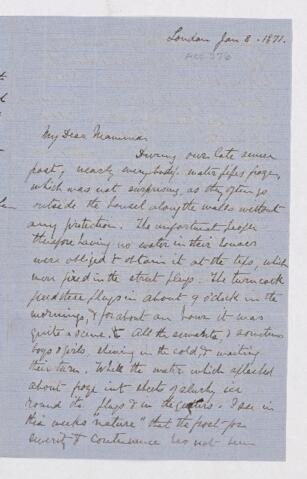 London Jan 8. 1871.
My Dear Mamma,
During our late severe
frost, nearly everybody's water pipes froze,
which was not surprising, as they often go
outside the houses along the walls without
any protection. The unfortunate people
therefore having no water in their houses
were obliged to obtain it at the taps, which
were fixed in the street plugs. The turncock
used these plugs in about 9 o'clock in the
mornings, & for about an hour it was
quite a scene. All the servants, & sometimes
boys & girls, shivering in the cold, & waiting
their turn. While the water which splashed
about froze into sheets of slushy ice
round the plugs & in the gutters. I see in
this weeks "nature" that the frost for
severity & continuance has not been